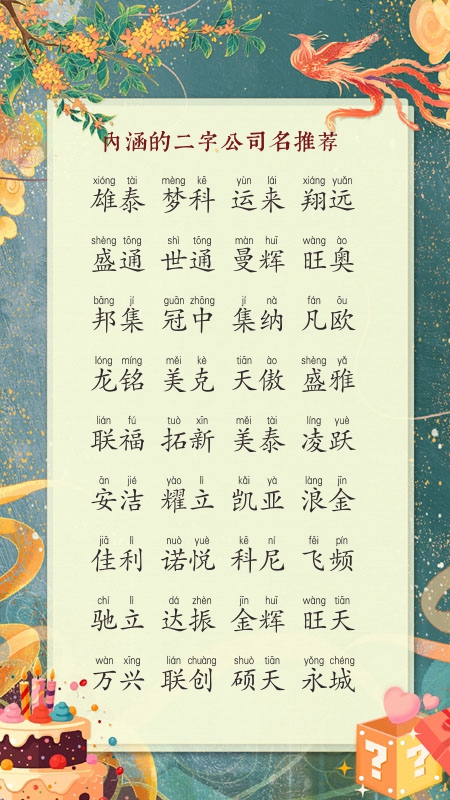 内涵的二字公司名推荐
xióng tài mèng kē yùn lái xiáng yuǎn
雄泰 梦科 运来 翔远
shèng tōng shì tōng màn huī wàng ào
盛通 世通 曼辉 旺奥
bāng jí guān zhōng jí nà fán ōu
邦集 冠中 集纳 凡欧
lóng míng měi kè tiān ào shèng yǎ
龙铭 美克 天傲 盛雅
lián fú tuò xīn měi tài líng yuè
联福 拓新 美泰 凌跃
ān jié yào lì kǎi yà làng jīn
安洁 耀立 凯亚 浪金
jiā lì nuò yuè kē ní fēi pín
佳利 诺悦 科尼 飞频
chí lì dá zhèn jīn huī wàng tiān
驰立 达振 金辉 旺天
wàn xīng lián chuàng shuò tiān yǒng chéng
万兴 联创 硕天 永城
? ?